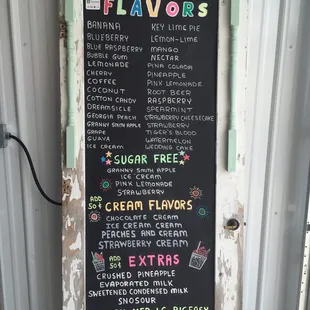 FLAVORS
BANANA
BLUEBERRY
BLUE RASPBERRY
BUBBLE GUM
LEMONADE
CHERRY
COFFEE
COCONUT
COTTON CANDY
DREAMSICLE
GEORGIA PEACH
GRANNY SMITH APPLE
GRAPE
GUAVA
ICE CREAM
KEY LIME PIE
LEMON-LIME
MANGO
NECTAR
PINA COLADA
PINEAPPLE
PINK LEMONADE
ROOT BEER
RASPBERRY
SPEARMINT
STRAWBERRY CHEESECAKE
STRAWBERRY
TIGER'S BLOOD
WATERMELON
WEDDING CAKE
SUGAR FREE
GRANNY SMITH APPLE
ICE CREAM
PINK LEMONADE
STRAWBERRY
ADD
50¢
CREAM FLAVORS
CHOCOLATE CREAM
ICE CREAM CREAM
PEACHES AND CREAM
STRAWBERRY CREAM
ADD
50¢
EXTRAS
CRUSHED PINEAPPLE
EVAPORATED MILK
SWEETENED CONDENSED MILK
SNOSOUR